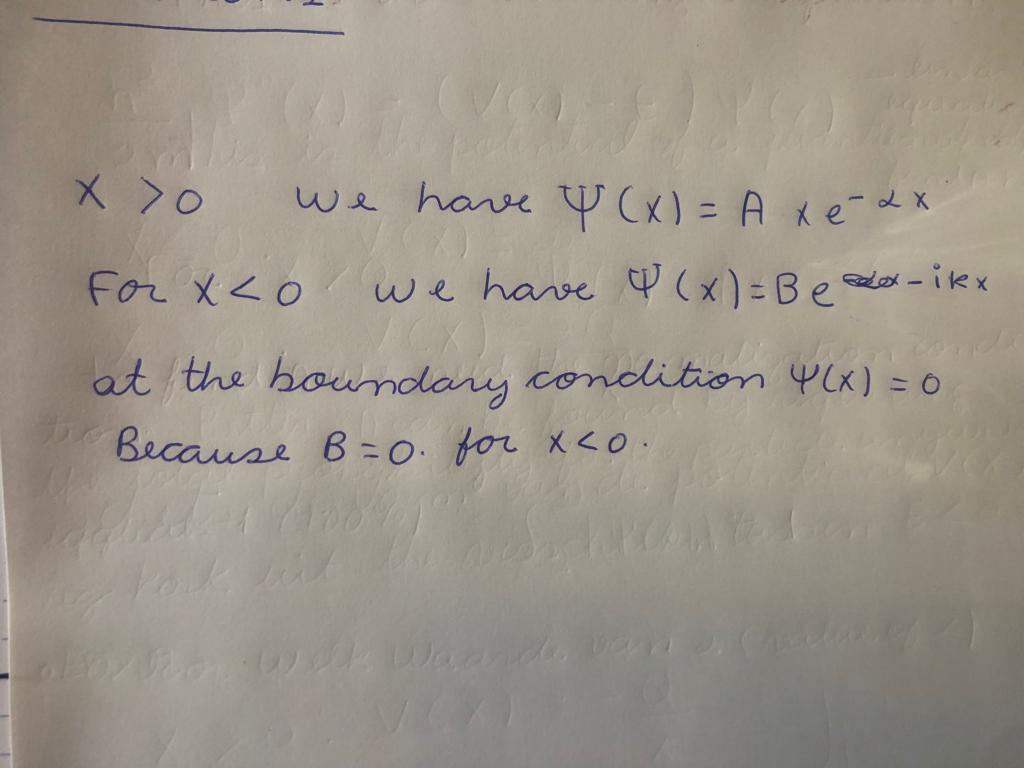 X > 0 We have Ψ(x) = A x e^{-αx}
For x < 0 we have Ψ(x) = B e^{-ikx}
at the boundary condition Ψ(x) = 0
Because B = 0. for x < 0.